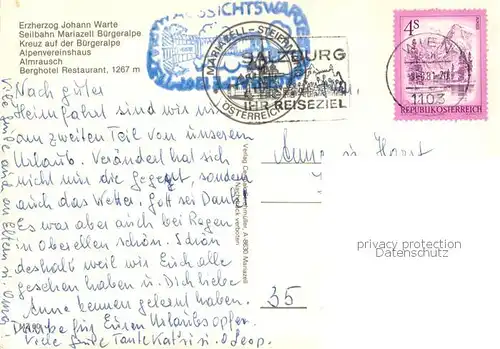 Erzherzog Johann Warte
Seilbahn Mariazell Bürgeralpe
Kreuz auf der Bürgeralpe
Alpenvereinshaus
Almrausch
Berghotel Restaurant, 1267 m
AUSSICHTSWARTE
MARIAZELL - STEIERMARK
ÖSTERREICH
SALZBURG
IHR REISEZIEL
WIEN
1103
4S
REPUBLIK ÖSTERREICH
Nach guter
Heimfahrt sind wir nun
am zweiten Teil von unserem
Urlaub. Verändert hat sich
nicht nur die Gegend, sondern
auch das Wetter. Gott sei Dank
Es war aber auch bei Regen
in Oberellen schön. Schon
deshalb weil wir Euch alle
gesehen haben u. Dich liebe
Anne kennen gelernt haben.
für Euren Urlaubsopfer.
Viele Grüße Tante u.
Viele Grüße auch an Eltern u. Oma.
Anne u. Horst
35
Verlag A-8630 Mariazell
Nachdruck verboten
privacy protection
Datenschutz